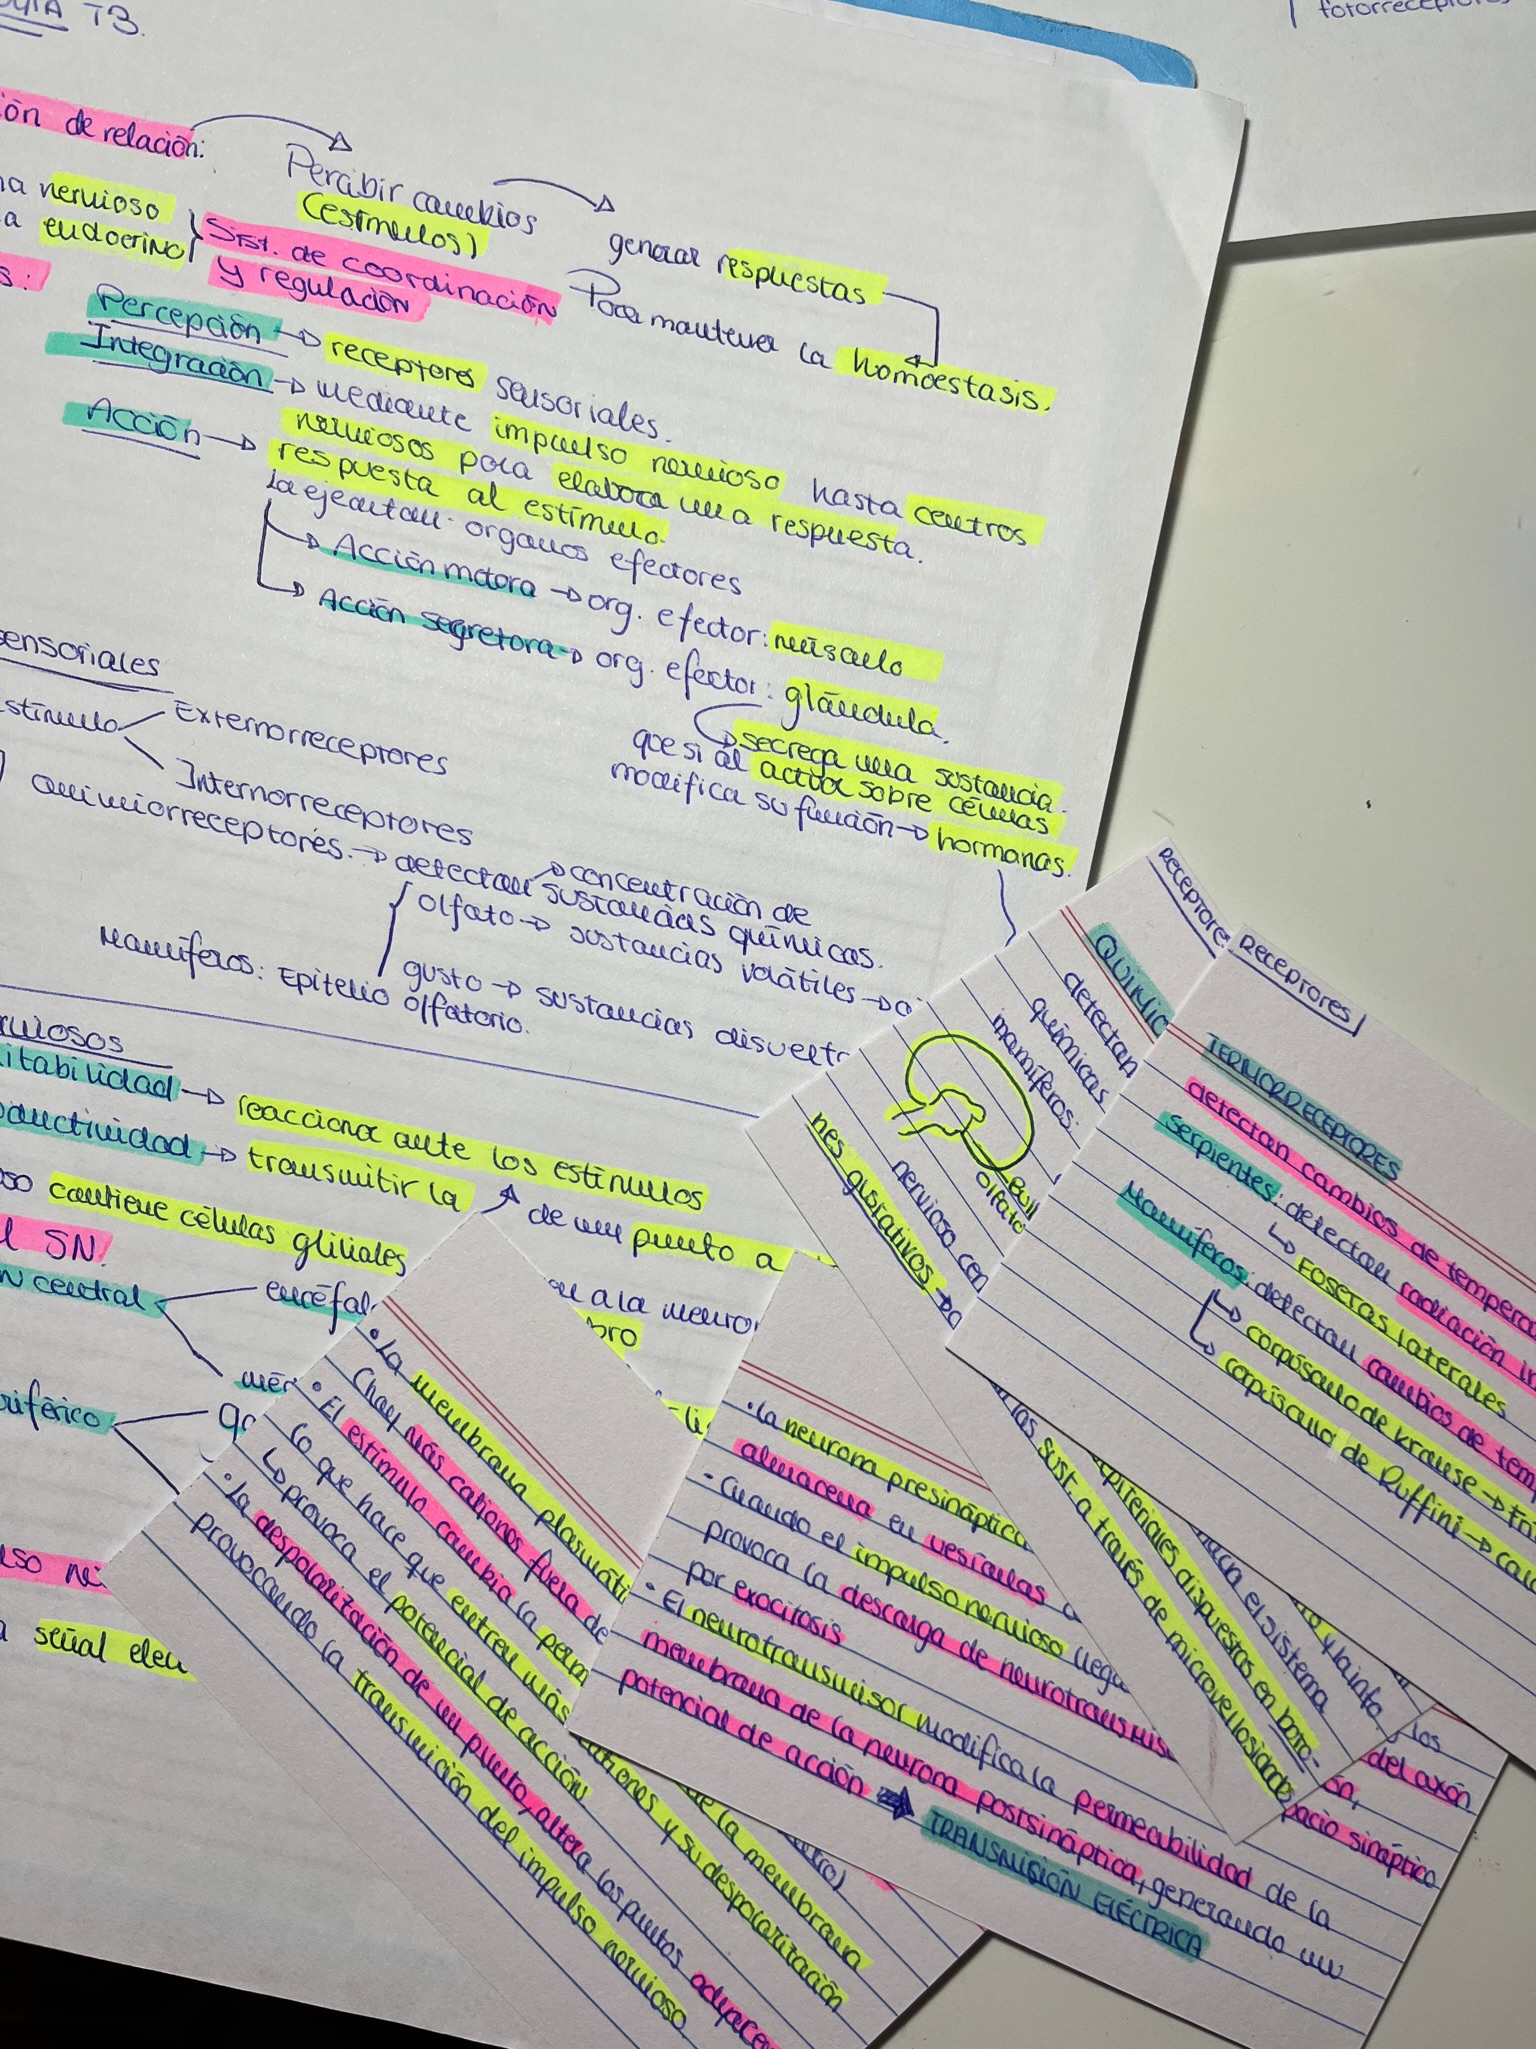 T3.
fotorreceptores
ión de relación:
Percibir cambios
(estímulos)
generar respuestas
Para mantener la homoestasis.
nervioso
a endocrino
Sist. de coordinación
y regulación
Percepción → receptores sensoriales.
Integración → mediante impulso nervioso hasta centros
nerviosos para elabora una respuesta.
Acción → respuesta al estímulo.
La ejecutan organos efectores
→ Acción motora → org. efector: músculo
→ Acción segretora → org. efector: glándula.
secrega una sustancia
que si al actúa sobre células
modifica su función → hormonas.
sensoriales
Externorreceptores
Internorreceptores
quimiorreceptores. → detectan concentración de
sustancias químicas.
olfato → sustancias volátiles →
gusto → sustancias disuelt
Mamíferos: Epitelio olfatorio.
itabilidad → reacciona ante los estímulos
ductividad → transmitir la
de un punto a
contiene células gliliales
l SN.
N central
encéfal
riférico
a señal elec
• La membrana plasmáti
(hay más cationos fuera de
• El estímulo cambia la perm
lo que hace que entren más
↳ provoca el potencial de acción
• La despolarización de un punto, altera los puntos adyace
provocando la transmisión del impulso nervioso
de la membrana
ationes y su despolarización
• La neurona presináptica
almacena en vesículas
• Cuando el impulso nervioso llega
provoca la descarga de neurotransmis
por exocitosis
• El neurotransmisor modifica la permeabilidad de la
membrana de la neurona postsináptica, generando un
potencial de acción → TRANSMISIÓN ELÉCTRICA
del axón
pacio sináptico
nes gustativos →
las sust. a través de microvellosidades
epiteriales dispuestas en boto-
el sistema
Receptores
QUIMIO
detectan
químicas
mamíferos:
Bul
olfato
nervioso cen
Receptores
TERMORRECEPTORES
detectan cambios de tempera
Serpientes: detectan radiación in
↳ Fosetas laterales
Mamíferos: detectan cambios de temp
↳ corpúsculo de Krause → frí
↳ corpúsculo de Ruffini → cal